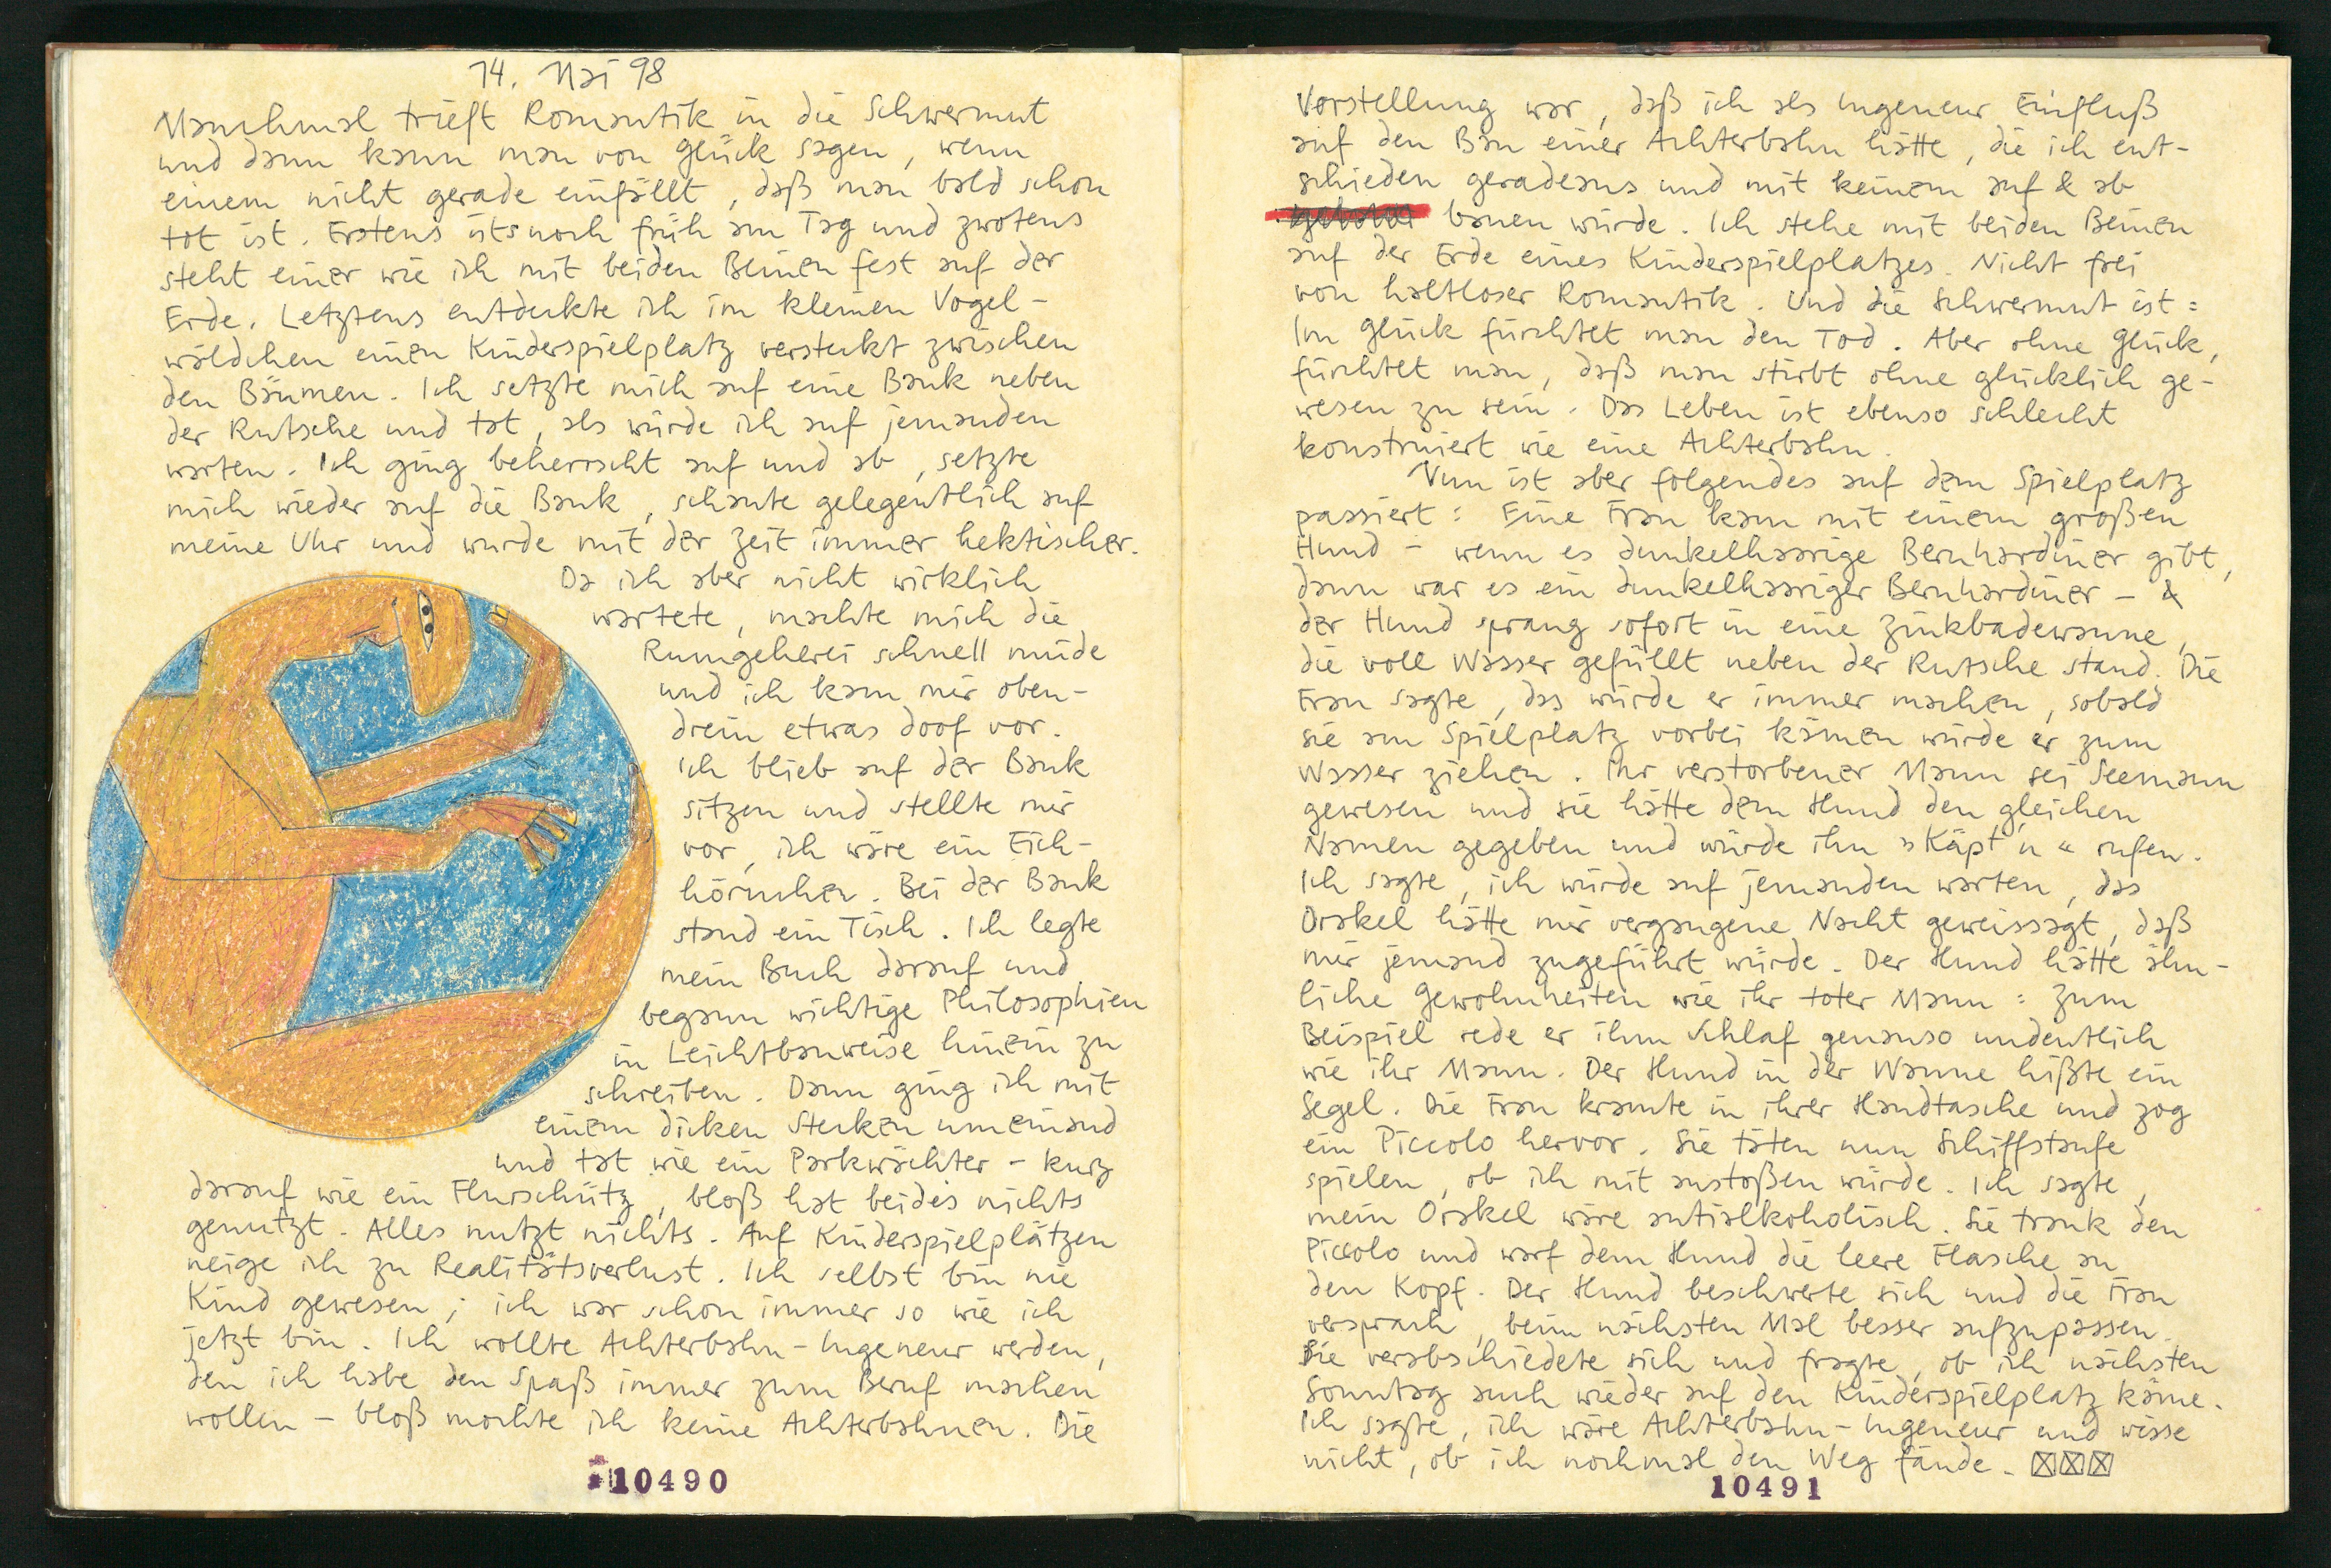 14. Mai 98
Manchmal trieft Romantik in die Schwermut
und dann kann man von Glück sagen, wenn
einem nicht gerade einfällt, daß man bald schon
tot ist. Erstens ists noch früh am Tag und zwotens
steht einer wie ich mit beiden Beinen fest auf der
Erde. Letztens entdeckte ich im kleinen Vogel-
wäldchen einen Kinderspielplatz versteckt zwischen
den Bäumen. Ich setzte mich auf eine Bank neben
der Rutsche und tat, als würde ich auf jemanden
warten. Ich ging beherrscht auf und ab, setzte
mich wieder auf die Bank, schaute gelegentlich auf
meine Uhr und wurde mit der Zeit immer hektischer.
Da ich aber nicht wirklich
wartete, machte mich die
Rumgeherei schnell müde
und ich kam mir oben-
drein etwas doof vor.
Ich blieb auf der Bank
sitzen und stellte mir
vor, ich wäre ein Eich-
hörnchen. Bei der Bank
stand ein Tisch. Ich legte
mein Buch darauf und
begann wichtige Philosophien
in Leichtbauweise hinein zu
schreiben. Dann ging ich mit
einem dicken Stecken umeinand
und tat wie ein Parkwächter - kurz
darauf wie ein Flurschütz, bloß hat beides nichts
genutzt. Alles nutzt nichts. Auf Kinderspielplätzen
neige ich zu Realitätsverlust. Ich selbst bin nie
Kind gewesen; ich war schon immer so wie ich
jetzt bin. Ich wollte Achterbahn-Ingeneur werden,
den ich habe den Spaß immer zum Beruf machen
wollen - bloß mochte ich keine Achterbahnen. Die
10490
Vorstellung war, daß ich als Ingeneur Einfluß
auf den Bau einer Achterbahn hätte, die ich ent-
schieden geradeaus und mit keinem auf & ab
bauen würde. Ich stehe mit beiden Beinen
auf der Erde eines Kinderspielplatzes. Nicht frei
von haltloser Romantik. Und die Schwermut ist:
Im Glück fürchtet man den Tod. Aber ohne Glück,
fürchtet man, daß man stirbt ohne glücklich ge-
wesen zu sein. Das Leben ist ebenso schlecht
konstruiert wie eine Achterbahn.
Nun ist aber folgendes auf dem Spielplatz
passiert: Eine Frau kam mit einem großen
Hund - wenn es dunkelhaarige Bernhardiner gibt,
dann war es ein dunkelhaariger Bernhardiner - &
der Hund sprang sofort in eine Zinkbadewanne,
die voll Wasser gefüllt neben der Rutsche stand. Die
Frau sagte, das würde er immer machen, sobald
sie am Spielplatz vorbei kämen würde er zum
Wasser ziehen. Ihr verstorbener Mann sei Seemann
gewesen und sie hätte dem Hund den gleichen
Namen gegeben und würde ihn »Käpt'n« rufen.
Ich sagte, ich würde auf jemanden warten, das
Orakel hätte mir vergangene Nacht geweissagt, daß
mir jemand zugeführt würde. Der Hund hätte ähn-
liche Gewohnheiten wie ihr toter Mann: Zum
Beispiel rede er ihm Schlaf genauso undeutlich
wie ihr Mann. Der Hund in der Wanne hißte ein
Segel. Die Frau kramte in ihrer Handtasche und zog
ein Piccolo hervor. Sie täten nun Schiffstaufe
spielen, ob ich mit anstoßen würde. Ich sagte,
mein Orakel wäre antialkoholisch. Sie trank den
Piccolo und warf dem Hund die leere Flasche an
den Kopf. Der Hund beschwerte sich und die Frau
versprach, beim nächsten Mal besser aufzupassen.
Sie verabschiedete sich und fragte, ob ich nächsten
Sonntag auch wieder auf den Kinderspielplatz käme.
Ich sagte, ich wäre Achterbahn-Ingeneur und wisse
nicht, ob ich nochmal den Weg fände.
10491